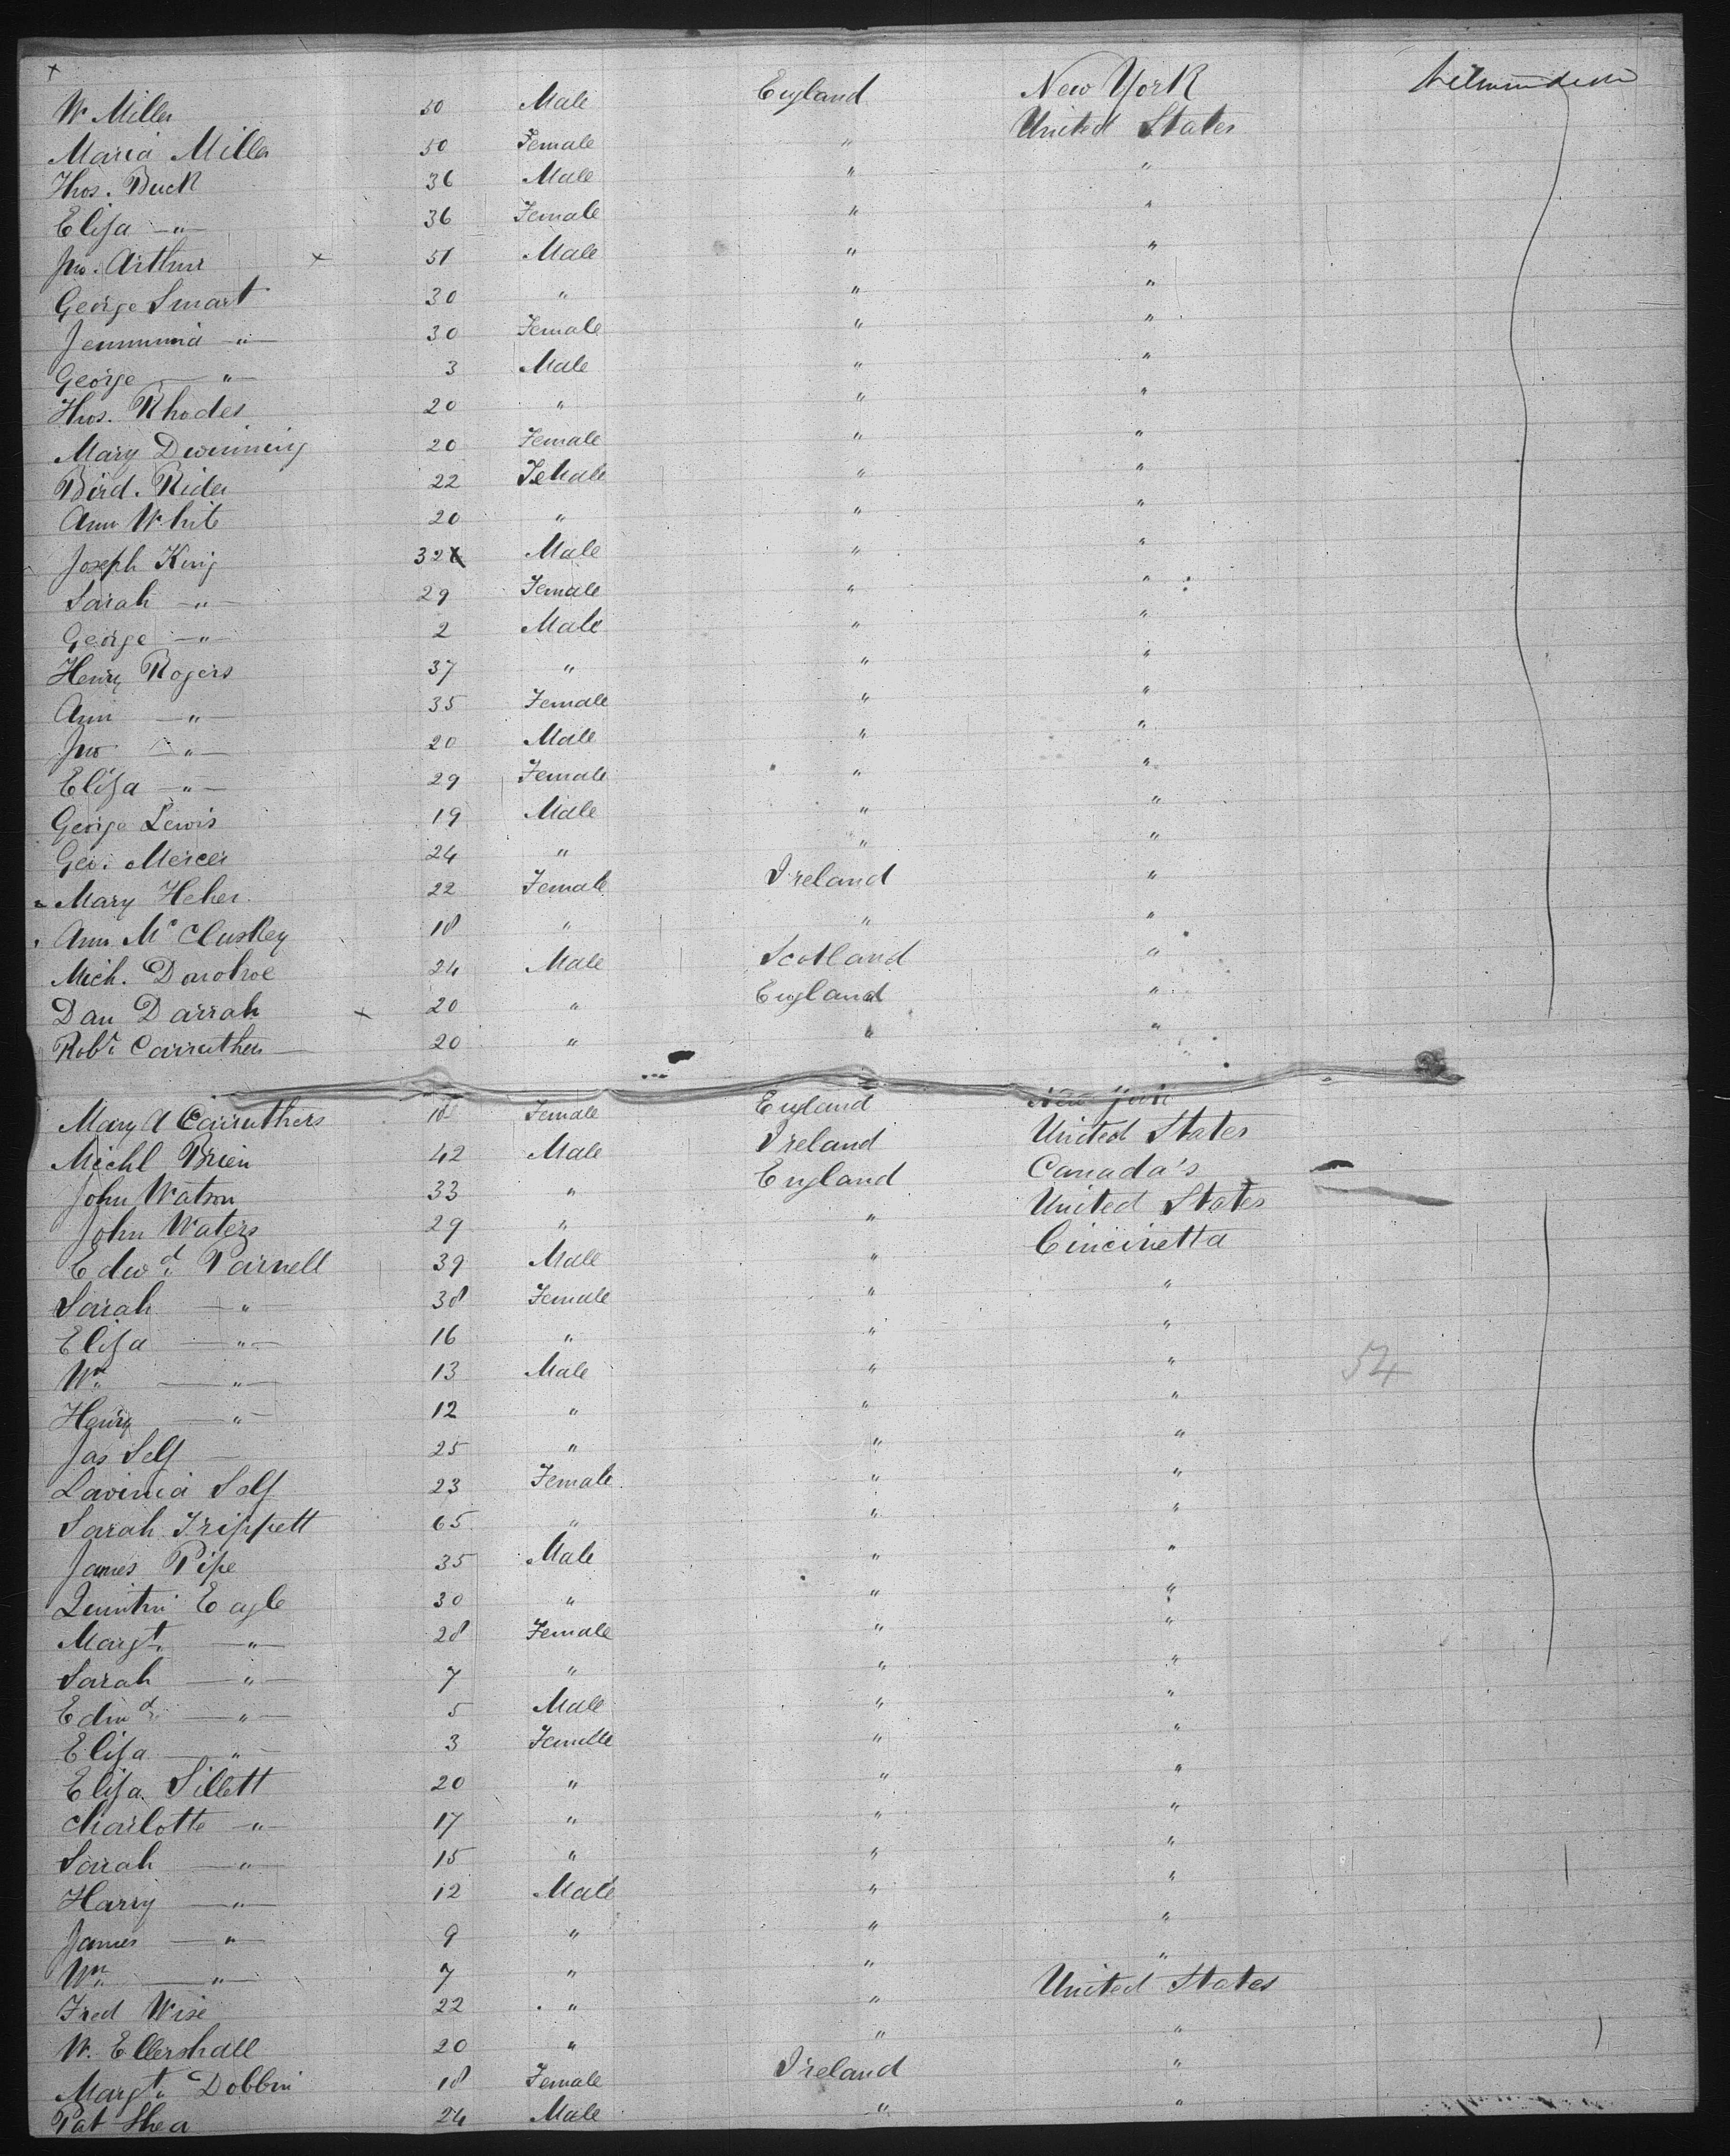 W Miller 50 Male England New York
Maria Miller 50 Female " United States
Thos. Buck 36 Male " "
Eliza —"— 36 Female " "
Jno. Arthur × 51 Male " "
George Smart 30 " " "
Jemmima —"— 30 Female " "
George —"— 3 Male " "
Thos. Rhodes 20 " " "
Mary 20 Female " "
Bird. Rider 22 Female " "
Ann White 20 " " "
Joseph King 32 Male " "
Sarah —"— 29 Female " "
George —"— 2 Male " "
Henry Rogers 37 " " "
Ann —"— 35 Female " "
Jno —"— 20 Male " "
Eliza —"— 29 Female " "
George Lewis 19 Male " "
Geo. Mercer 24 " " "
Mary Heher 22 Female Ireland "
Ann McCluskey 18 " " "
Mich. Donohoe 24 Male Scotland "
Dan Darrah × 20 " England "
Robt. Carruthers 20 " " "
Mary A Carruthers 18 Female England New York
Michl Brien 42 Male Ireland United States
John Watson 33 " England Canada's
John Waters 29 " " United States
Edwd. Parnell 39 Male " Cincinetta
Sarah —"— 38 Female " "
Eliza —"— 16 " " "
Wm. —"— 13 Male " " 54
Henry —"— 12 " " "
Jas Self 25 " " "
Lavinia Self 23 Female " "
Sarah Trippett 65 " " "
James Pipe 35 Male " "
Quintin Eagle 30 " " "
Margt. —"— 28 Female " "
Sarah —"— 7 " " "
Edwd. —"— 5 Male " "
Eliza —"— 3 Female " "
Eliza Sillett 20 " " "
Charlotte —"— 17 " " "
Sarah —"— 15 " " "
Harry —"— 12 Male " "
James —"— 9 " " "
Wm. —"— 7 " " "
Fred Wise 22 " " United States
W. Ellershall 20 " " "
Margt. Dobbin 18 Female Ireland "
Pat Shea 24 Male " "